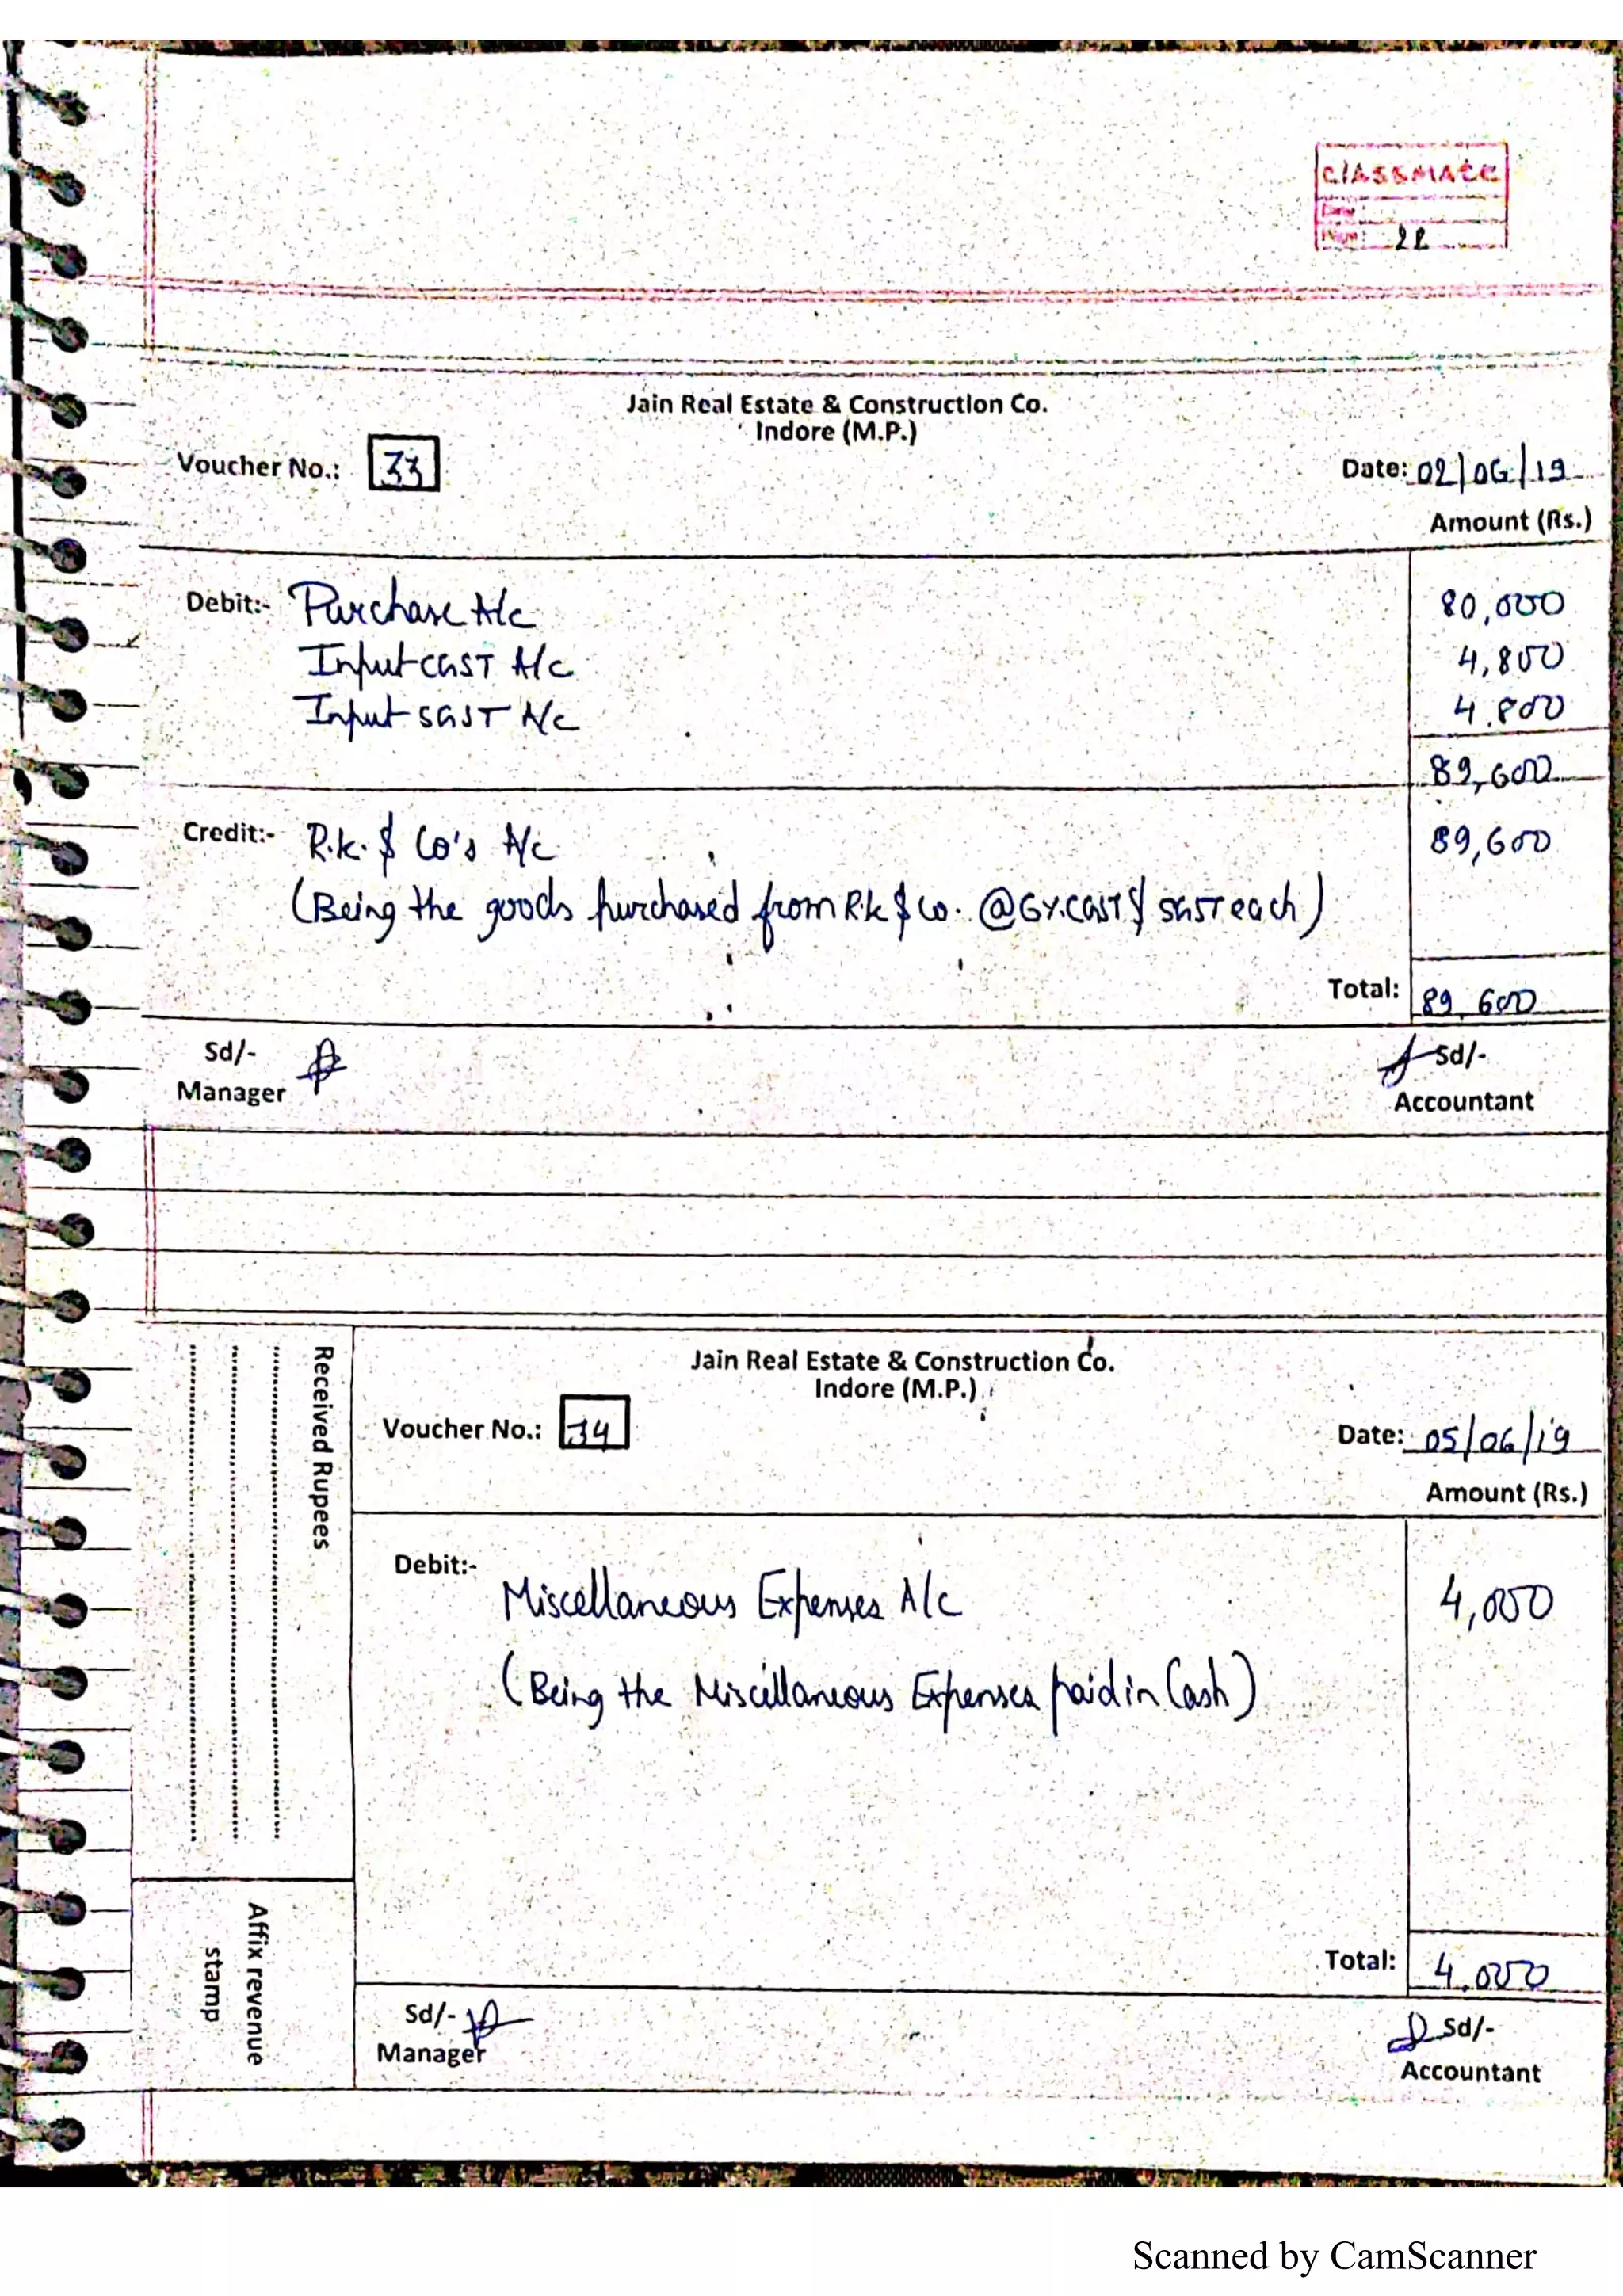 classmate
Date
Page 22
Jain Real Estate & Construction Co.
Indore (M.P.)
Voucher No.: 33
Date: 02/06/19
Amount (Rs.)
Debit:- Purchase A/c 80,000
Input CGST A/c 4,800
Input SGST A/c 4,800
89,600
Credit:- R.K. & Co's A/c 89,600
(Being the goods purchased from R.K & Co. @6%.CGST & SGST each)
Total: 89,600
Sd/- Sd/-
Manager Accountant
Received Rupees
Affix revenue
stamp
Jain Real Estate & Construction Co.
Indore (M.P.)
Voucher No.: 34
Date: 05/06/19
Amount (Rs.)
Debit:-
Miscellaneous Expenses A/c 4,000
(Being the Miscellaneous Expenses paid in Cash)
Total: 4,000
Sd/- Sd/-
Manager Accountant
Scanned by CamScanner